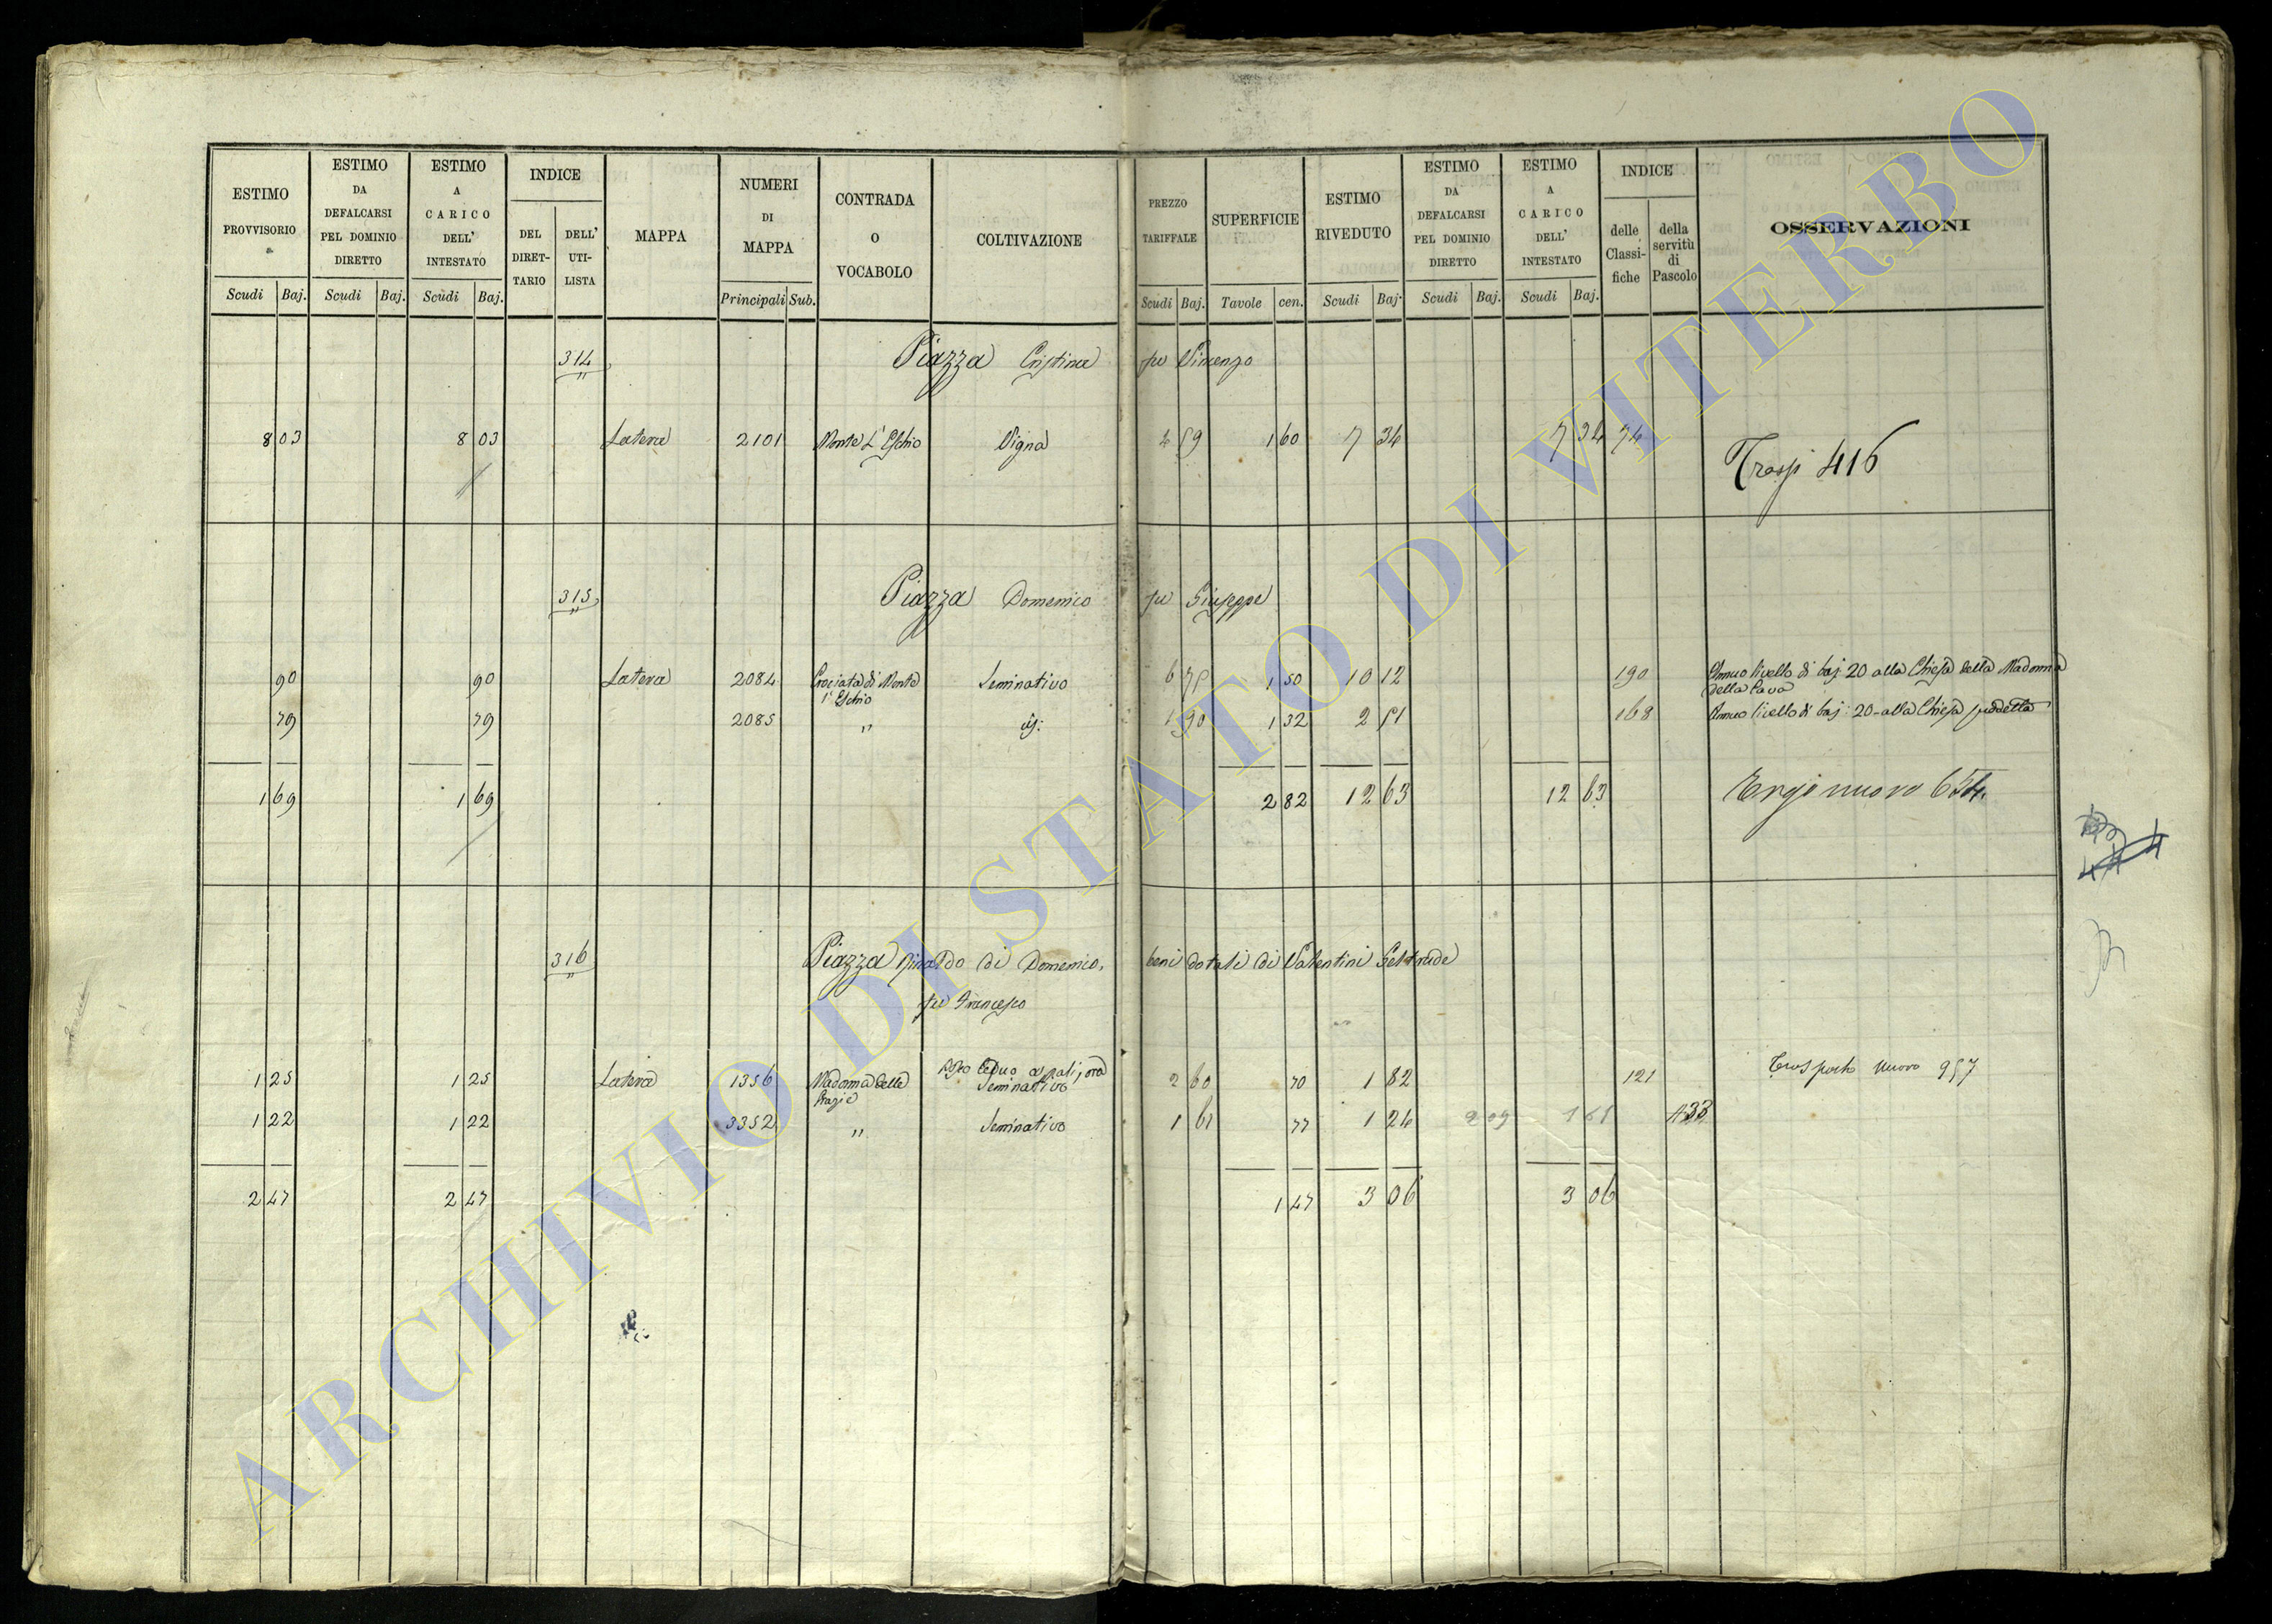 ESTIMO PROVVISORIO
ESTIMO DA DEFALCARSI PEL DOMINIO DIRETTO
ESTIMO A CARICO DELL' INTESTATO
INDICE
DEL DIRET-TARIO
DELL' UTI-LISTA
MAPPA
NUMERI DI MAPPA
CONTRADA O VOCABOLO
COLTIVAZIONE
PREZZO TARIFFALE
SUPERFICIE
ESTIMO RIVEDUTO
ESTIMO DA DEFALCARSI PEL DOMINIO DIRETTO
ESTIMO A CARICO DELL' INTESTATO
INDICE
delle Classi-fiche
della servitù di Pascolo
OSSERVAZIONI
Scudi Baj. Scudi Baj. Scudi Baj. Principali Sub. Scudi Baj. Tavole cen. Scudi Baj. Scudi Baj. Scudi Baj.
314 Piazza Cristina fu Vincenzo
8 03 8 03 Latera 2101 Monte L'Eschio Vigna 4 59 1 60 7 34 7 34 74
Trasp 416
315 Piazza Domenico fu Giuseppe
90 90 Latera 2084 Crociata di Monte l'Eschio Seminativo 6 75 1 50 10 12 190 Annuo livello di baj 20 alla Chiesa della Madonna
della Cava
79 79 2085 " id: 1 90 1 32 2 51 168 Annuo livello di baj: 20 alla Chiesa suddetta
1 69 1 69 2 82 12 63 12 63 nuovo 654
316 Piazza Rinaldo di Domenico, beni dotali di Valentini Geltrude
fu Francesco
1 25 1 25 Latera 1356 Madonna delle Grazie ceduo a pali, ora Seminativo 2 60 70 1 82 121 Trasporto nuovo 957
1 22 1 22 3352 " Seminativo 1 61 77 1 24 2 09 1 65 433
2 47 2 47 1 47 3 06 3 06
ARCHIVIO DI STATO DI VITERBO